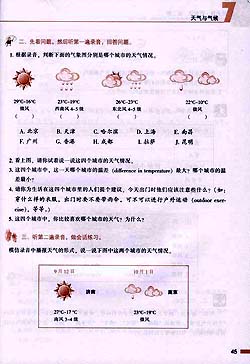 天气与气候
7
二、先看问题，然后听第一遍录音，回答问题。
1. 根据录音，判断下面的气象图分别是哪个城市的天气情况。
29℃~16℃
23℃~19℃
26℃~23℃
22℃~10℃
微风
西南风 4~5 级
东北风 4~5 级
微风
( )
( )
( )
( )
A. 北京
B. 天津
C. 哈尔滨
D. 上海
E. 南昌
F. 广州
G. 香港
H. 成都
I. 拉萨
J. 昆明
2. 看上图，请你试着说一说这四个城市的天气情况。
3. 这四个城市中，这一天哪个城市的温差 (difference in temperature) 最大？哪个城市的温
差最小？
4. 请你为生活在这四个城市里的人们提个建议，今天出门时他们应该注意些什么？（如：
穿什么样的衣服、出门时要不要带雨伞、可不可以进行户外运动 (outdoor exer-
cise)，等等。）
5. 这四个城市中，你比较喜欢哪个城市的天气？为什么？
三、听第二遍录音，做会话练习。
模仿录音中播报天气的形式，说一说下图中这两个城市的天气情况。
9月12日
10月1日
济南
南京
27℃~17℃
23℃~19℃
南风 3~4 级
微风
45